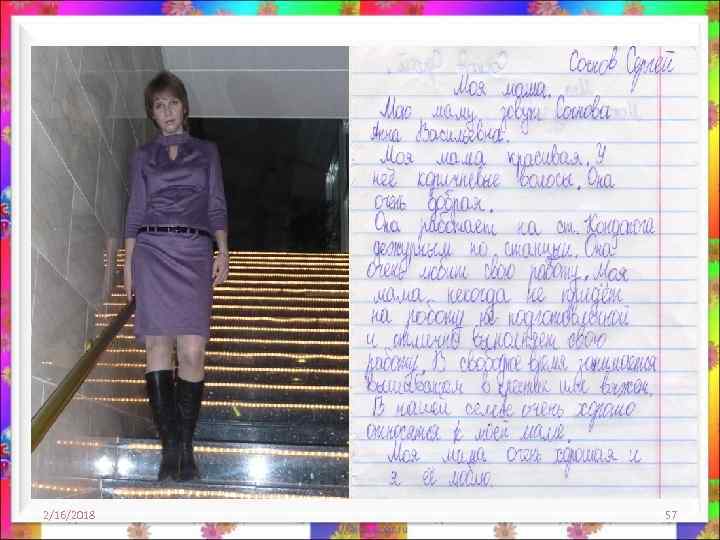 Соснов Сергей
Моя мама.
Мою маму зовут Соснова
Анна Васильевна.
Моя мама красивая. У
неё коричневые волосы. Она
очень добрая.
Она работает на ст. Кондопога
дежурным по станции. Она
очень любит свою работу. Моя
мама некогда не придёт
на работу не подготовленной
и отлично выполняет свою
работу. В свободное время занимается
вышиванием в крестик или вяжет.
В нашей семье очень хорошо
относятся к моей маме.
Моя мама очень хорошая и
я её люблю.
2/16/2018
57